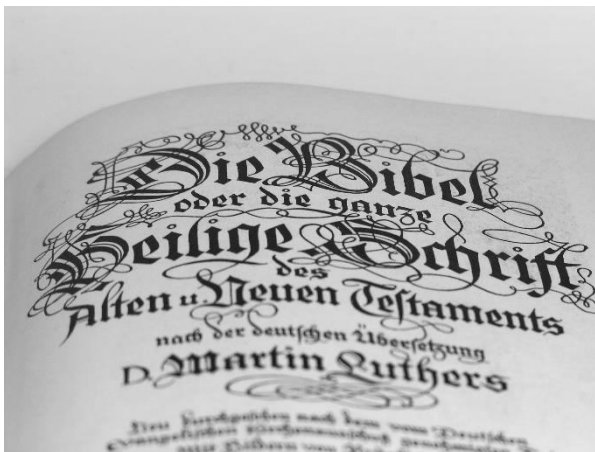 Die Bibel
oder die ganze
Heilige Schrift
des
Alten u. Neuen Testaments
nach der deutschen Übersetzung
D. Martin Luthers
Neu durchgesehen nach dem vom Deutschen
Evangelischen Kirchenausschuß genehmigten
Mit Bildern von